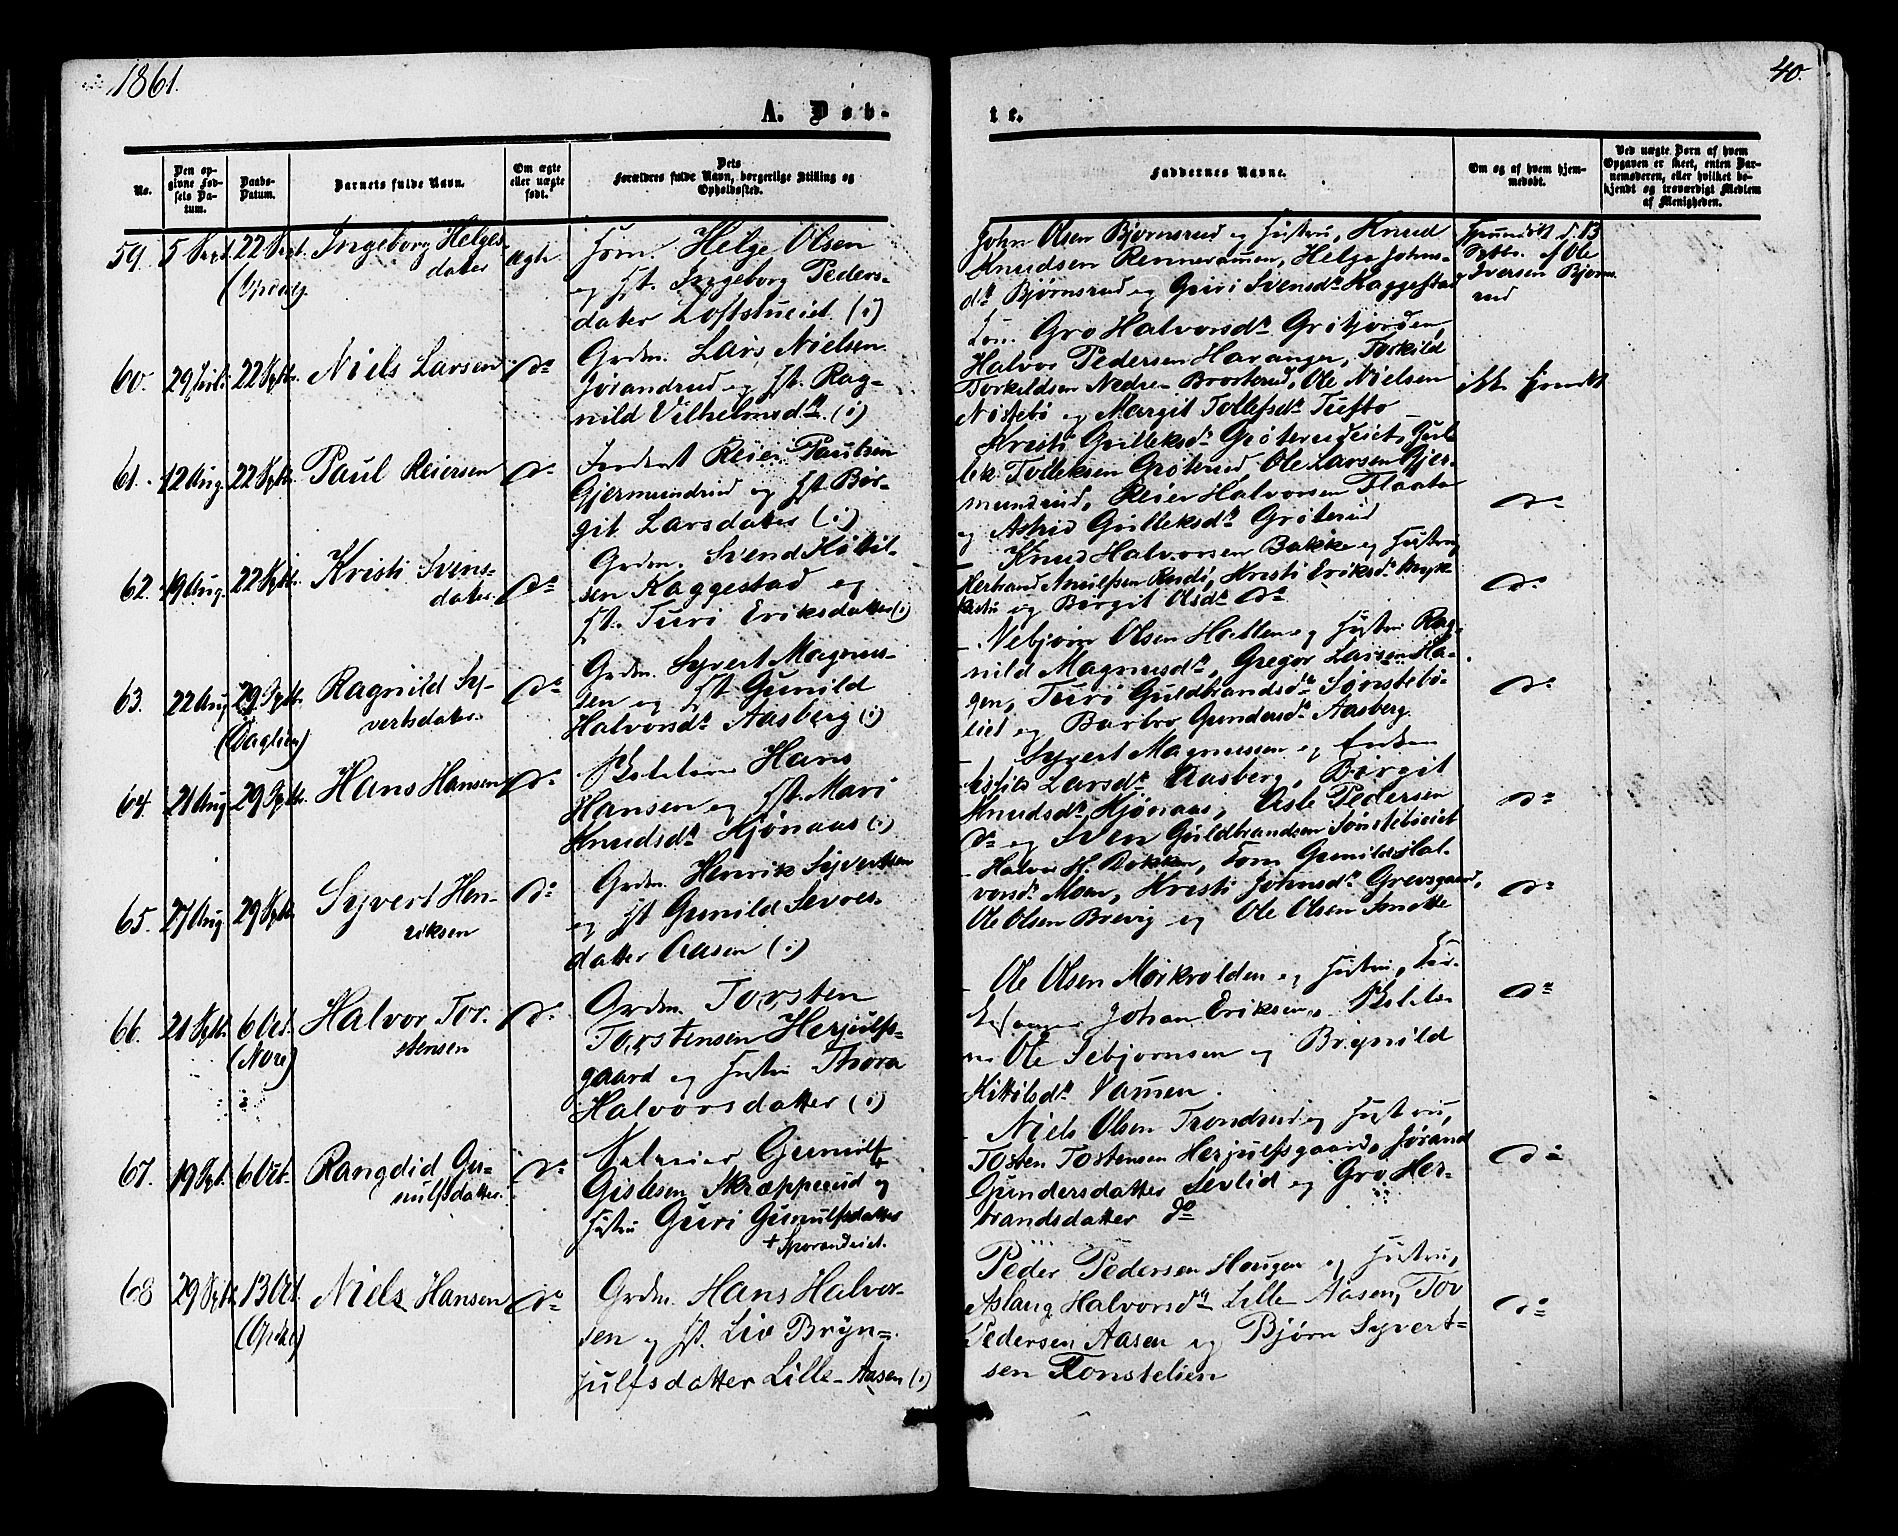 1861.
40.
A. Døb-
te.
No.
Den op-
givne Fød-
sels Da-
tum.
Daabs-
Datum.
Barnets fulde Navn.
Om ægte
eller uægte
født.
Dets
Forældres fulde Navn, borgerlige Stilling og
Opholdssted.
Faddernes Navne.
Om og af hvem hjem-
medøbt.
Ved uægte Børn af hvem
Opgaven er skeet, enten Bar-
nemoderen, eller hvilket be-
kjendt og troværdigt Medlem
af Menigheden.
59. 5 Sept. 22 Sept.
Ingeborg Helges-
datter
ægte
Helge Olsen
og Hst. Ingeborg Peders-
datter Loftstueiet (i)
John Olsen Bjørnsrud og Hustru, Knud
Knudsen Helge Johns-
dr Bjørnsrud og Guri Svensdr Kaggestad
Hjemdøbt d. 13
Septbr. af Ole
Iversen Bjørns-
rud
60. 22 Septb.
Niels Larsen
do
Grdm. Lars Nielsen
Jørandrud og Hst. Rag-
nild Vilhelmsdr (i)
Gro Halvorsdr Grøtjorden,
Halvor Pedersen Haranger, Torkild
Torkildsen Nedre-Brosterud, Ole Nielsen
Nøstebø og Margit Tollefsdr Tufto
ikke hjemdt
61. 12 Aug. 22 Septb.
Paul Reiersen
do
Reier Paulsen
Gjermundrud og Hst. Bir-
git Larsdatter (i)
Kristi Gulleksdr Grøterudeiet, Gul-
lek Tolleksen Grøterud Ole Larsen Gjer-
mundrud, Reier Halvorsen Flaata
og Astrid Gulleksdr Grøterud
do
62. 19 Aug. 22 Septb.
Kristi Svens-
datter
do
Grdm. Svend Kittil-
sen Kaggestad og
Hst. Turi Eriksdatter (i)
Knud Halvorsen Bakke og Hustru
Herbrand Kristi Eriksdr
og Birgit Olsdr do
do
63. 22 Aug. 29 Septb.
(Daglien)
Ragnild Sy-
vertsdatter
do
Grdm. Syvert Magnus-
sen og Hst. Gunild
Halvorsdr Aasberg (i)
Nebjørn Olsen Hallen og Hustru Rag-
nild Magnusdr, Gregor Larsen Ha-
gen, Turi Guldbrandsdr Sønstebø-
eiet og Barbro Gundersdr Aasberg
do
64. 21 Aug. 29 Septb.
Hans Hansen
do
Hans
Hansen og Hst. Mari
Knudsdr Hjønaas (i)
Syvert Magnussen og Enken
Larsdr Aasberg, Birgit
Knudsdr Hjønaas, Asle Pedersen
do og Sven Guldbrandsen Sønstebøeiet
do
65. 27 Aug. 29 Septb.
Syvert Hen-
riksen
do
Grdm. Henrik Syvertsen
og Hst Gunild Sevres-
datter Aasen (i)
Halvor H. Bakken, Gunild Hal-
vorsdr Moen, Kristi Johnsdr Grevsgaard,
Ole Olsen Brevig og Ole Olsen
do
66. 21 Septb. 6 Oct.
(Nore)
Halvor Tor-
stensen
do
Grdm. Torsten
Torstensen Herjulfs-
gaard og Hustru Thora
Halvorsdatter (i)
Ole Olsen Mørkvolden og Hustru,
Johan Eriksen,
Ole Sebjørnsen og Brynild
Kittilsdr
do
67. 19 Sept. 6 Oct.
Rangdid Gu-
nulfsdatter
do
Gunulf +
Gislesen Skrapperud og
Hustru Guri Gunulfsdatter
+
Niels Olsen Trondrud og Hustru,
Tosten Tostensen Herjulfsgaard, Jørand
Gundersdatter Sevlid og Gro Her-
brandsdatter do
do
68 29 Septb. 13 Oct.
(Opdal)
Niels Hansen
do
Grdm. Hans Halvor-
sen og Hst. Liv Bryn-
julfsdatter Lille-Aasen (i)
Peder Pedersen Haugen og Hustru,
Aslaug Halvorsdr Lille Aasen, Tov
Pedersen Aasen og Bjørn Syvert-
sen Tonstelien
do